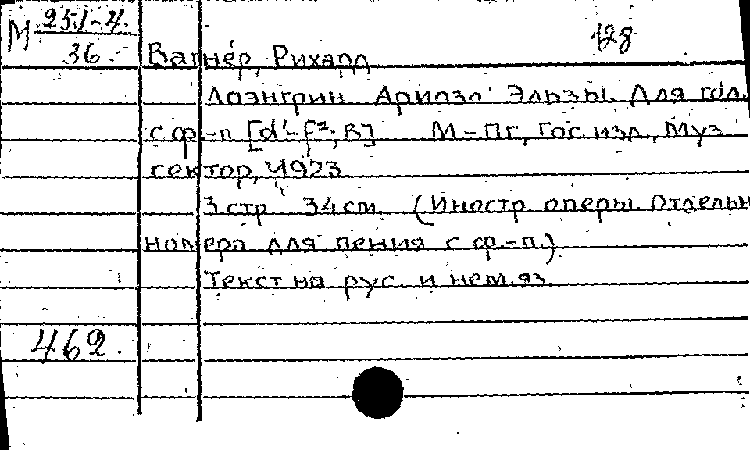 М 251-4
36
128
Вагнер, Рихард
Лоэнгрин. Ариозо Эльзы. Для гол.
с ф.-п. [d'-f²; B] М.-Пг., Гос. изд., Муз.
сектор, 1923
3 стр. 34 см. (Иностр. оперы. Отдельн
номера для пения с ф.-п.)
Текст на рус. и нем. яз.
462.